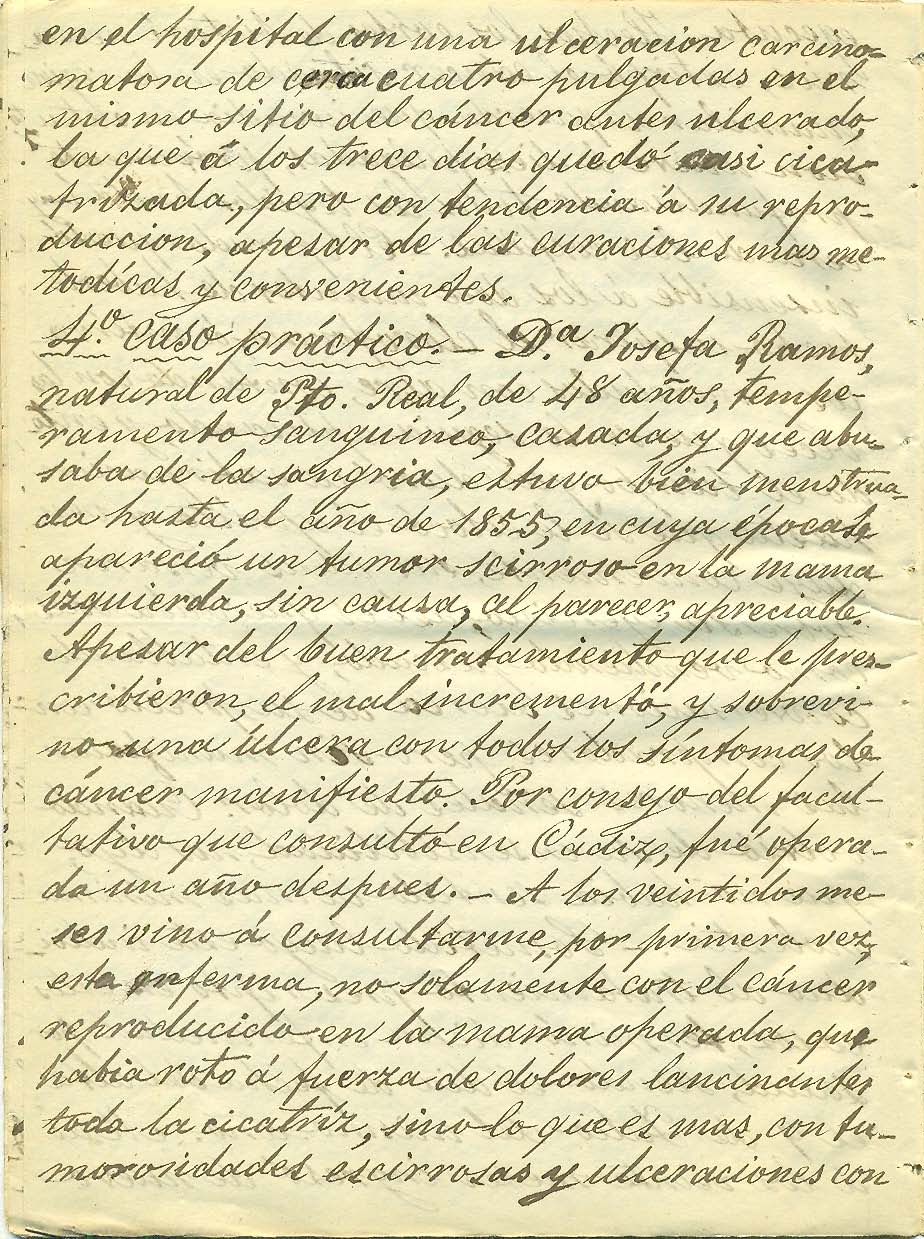 en el hospital con una ulceracion carcino-
matosa de cerca cuatro pulgadas en el
mismo sitio del cáncer antes ulcerado,
la que á los trece dias quedó casi cica-
trizada, pero con tendencia á su repro-
duccion, apesar de las curaciones mas me-
tódicas y convenientes.
4.º caso práctico. - D.ª Josefa Ramos,
natural de Pto. Real, de 48 años, tempe-
ramento sanguineo, casada, y que abu-
saba de la sangria, estuvo bien menstrua-
da hasta el año de 1855, en cuya época le
apareció un tumor scirroso en la mama
izquierda, sin causa, al parecer, apreciable.
Apesar del buen tratamiento que le pres-
cribieron, el mal incrementó, y sobrevi
no una úlcera con todos los síntomas de
cáncer manifiesto. Por consejo del facul-
tativo que consultó en Cádiz, fué opera-
da un año despues. - A los veintidos me-
ses vino á consultarme, por primera vez,
esta enferma, no solamente con el cáncer
reproducido en la mama operada, que
habia roto á fuerza de dolores lancinantes
toda la cicatríz, sino lo que es mas, con tu-
morosidades escirrosas y ulceraciones con